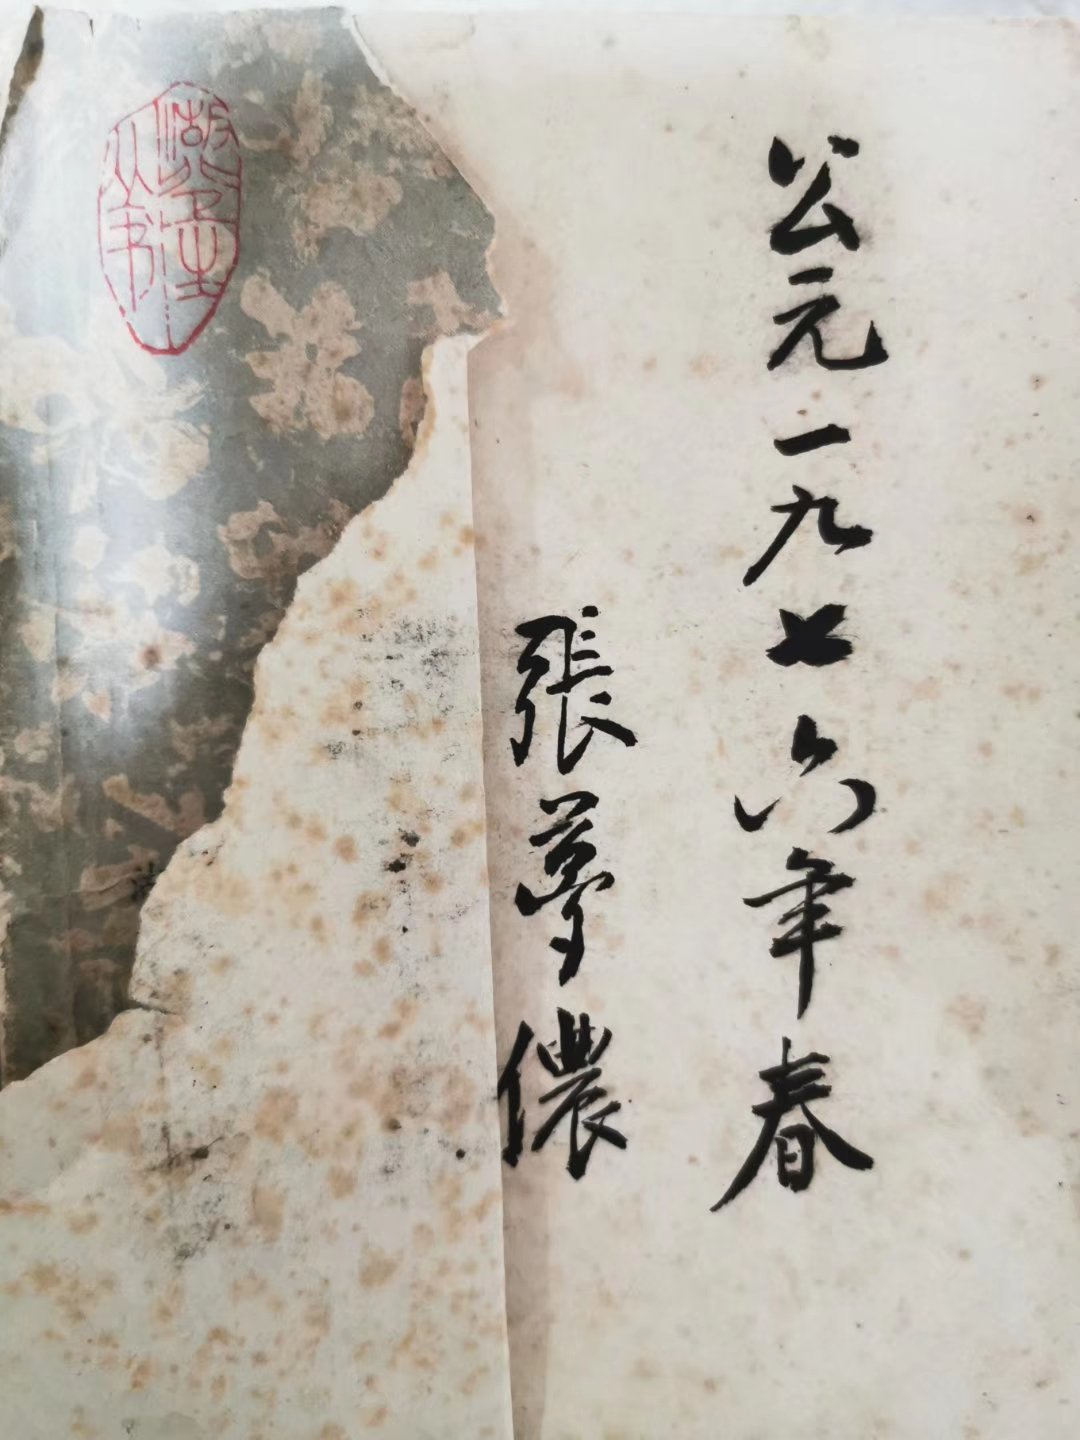 公元一九七六年春
張夢儂